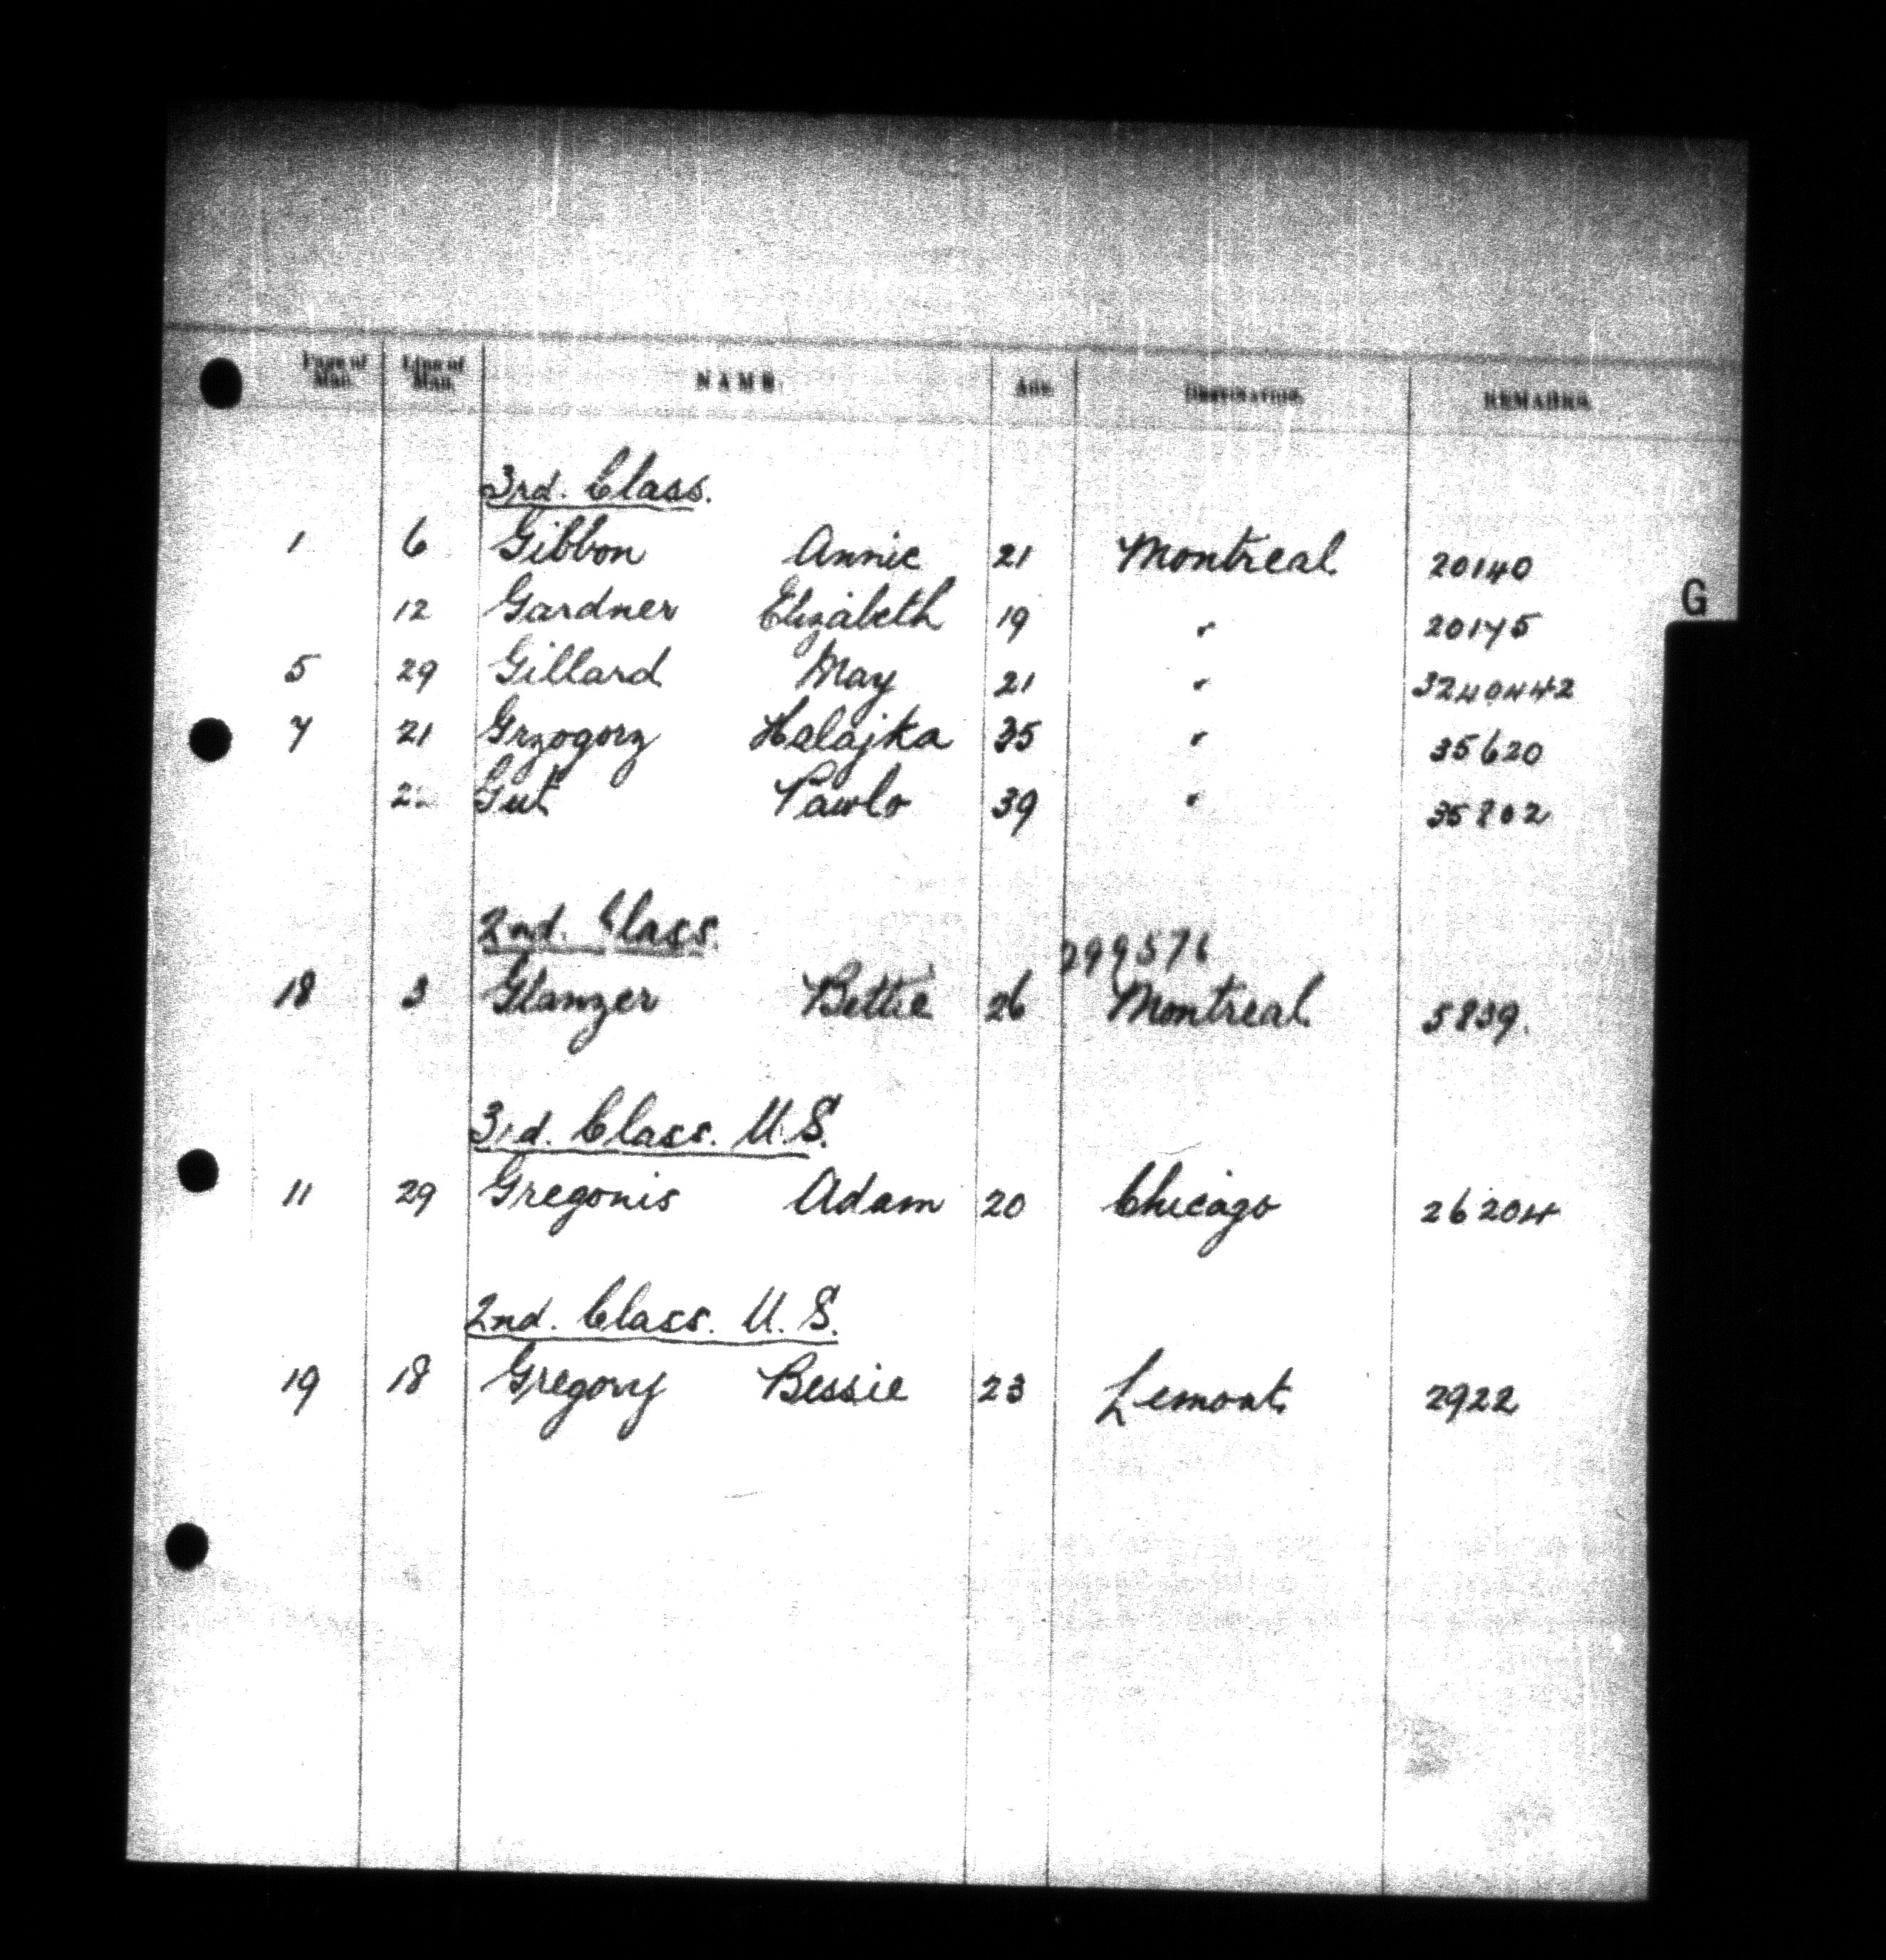 Page of Man. Line of Man. NAME. Age. Destination. REMARKS.
3rd. Class.
1 6 Gibbon Annie 21 Montreal 20140
12 Gardner Elizabeth 19 " 20175
G
5 29 Gillard May 21 " 3240442
7 21 Grzogorz Halajka 35 " 35620
Gut Pawlo 39 " 35802
2nd. Class. 
18 3 Glanzer Bettie 26 Montreal 5839.
3rd. Class. U.S.
11 29 Gregonis Adam 20 Chicago 26204
2nd. Class. U.S.
19 18 Gregory Bessie 23 Lemont 2922